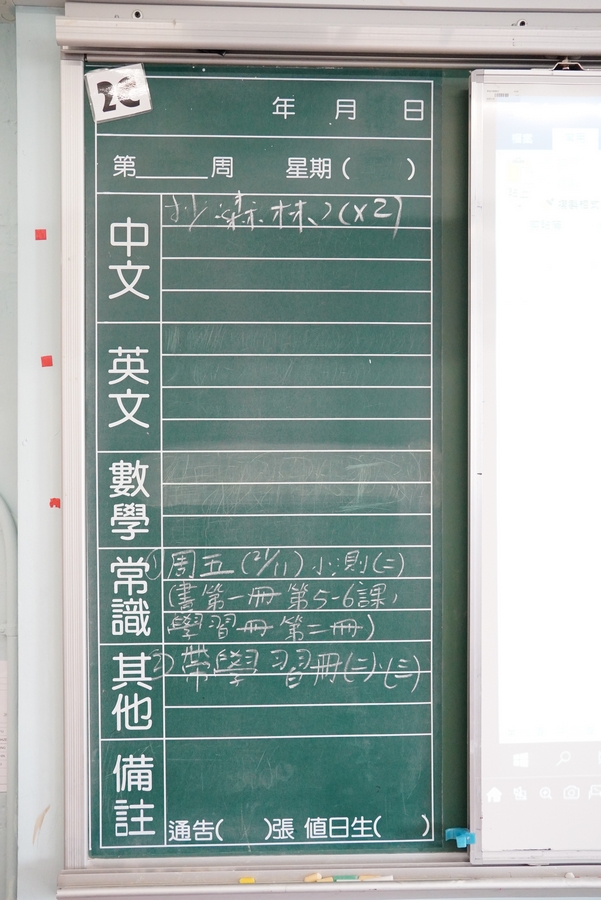 2C
年 月 日
第______周 星期( )
中文
抄森林》(x2)
英文
數學
常識
① 周五(21/11)小測(二)
(書第一冊第5-6課,
學習冊第二冊)
其他
② 帶學習冊(二)、(三)
備註
通告( )張 值日生( )